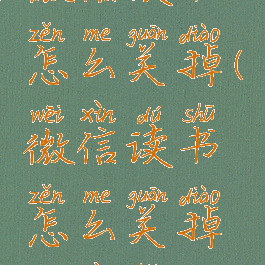 zěn me guān diào
怎么关掉(
wēi xìn dú shū
微信读书
zěn me guān diào
怎么关掉